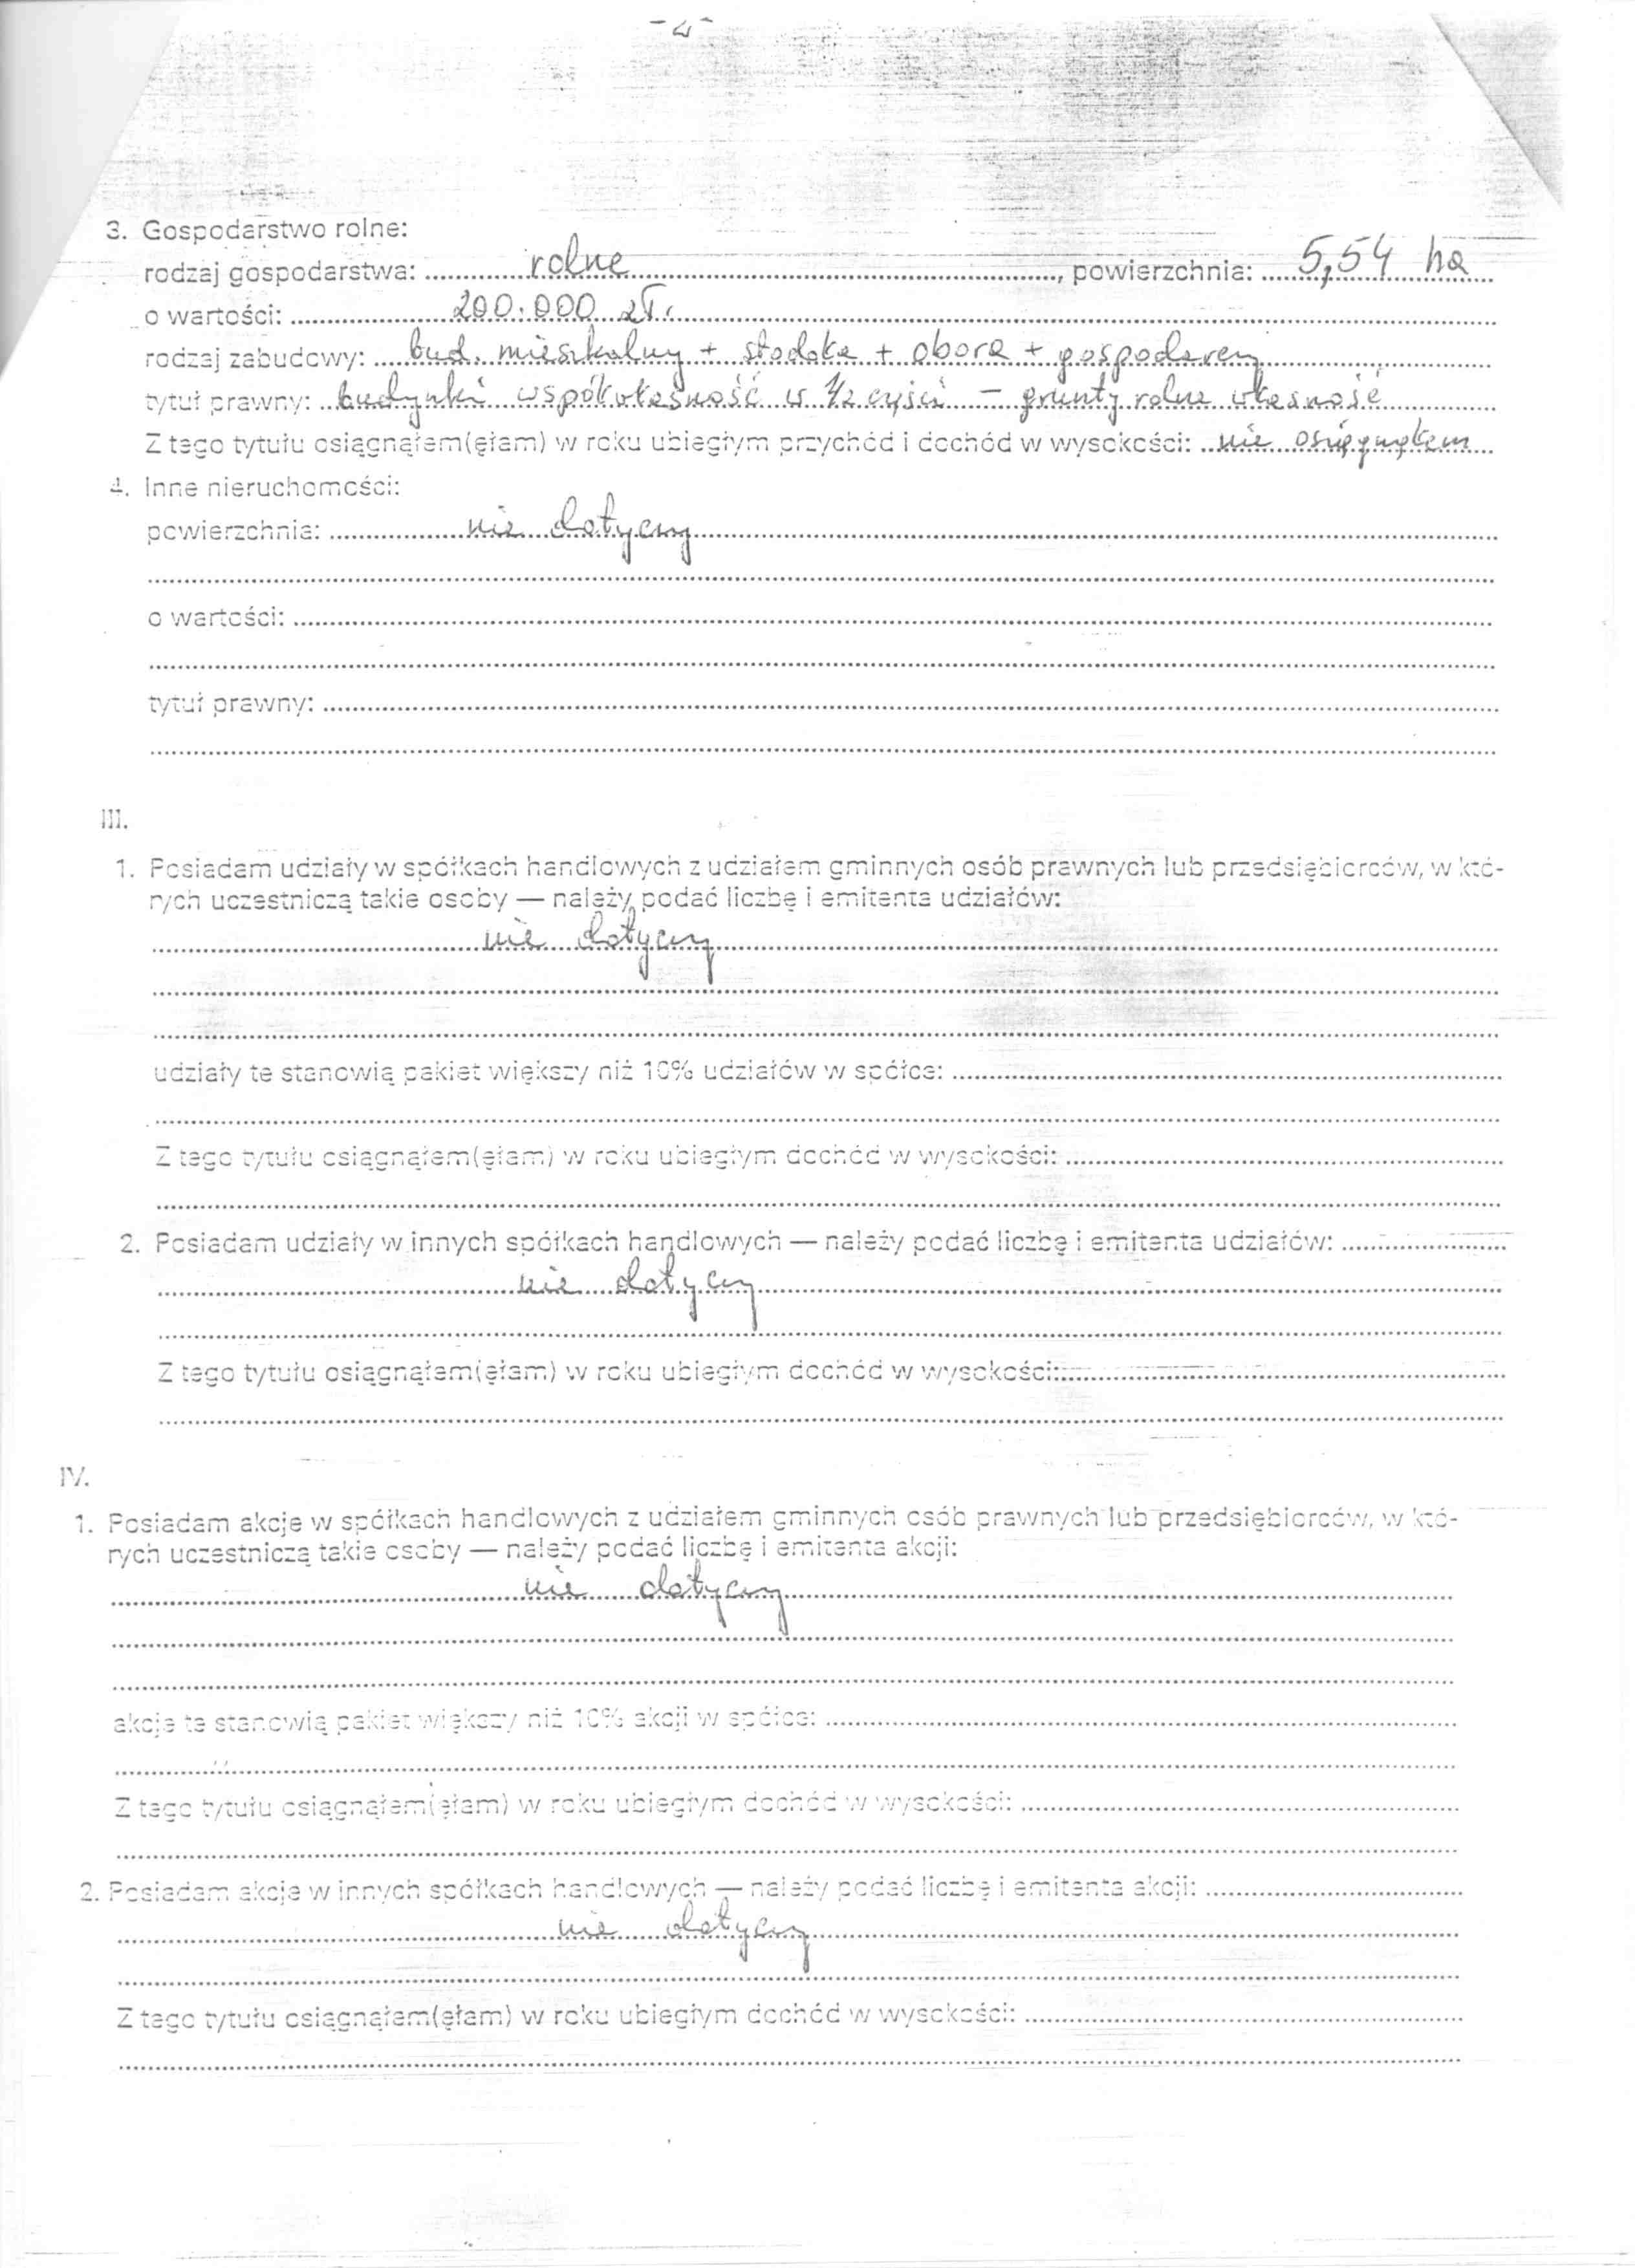 3. Gospodarstwo rolne:
rodzaj gospodarstwa: rolne, powierzchnia: 5,54 ha
o wartości: 200.000 zł.
rodzaj zabudowy: bud. mieszkalny + stodoła + obora + gospodarczy
tytuł prawny: budynki współwłasność w 1/2 części – grunty rolne własność
Z tego tytułu osiągnąłem(ęłam) w roku ubiegłym przychód i dochód w wysokości: nie osiągnąłem
4. Inne nieruchomości:
powierzchnia: nie dotyczy
o wartości:
tytuł prawny:
III.
1. Posiadam udziały w spółkach handlowych z udziałem gminnych osób prawnych lub przedsiębiorców, w któ-
rych uczestniczą takie osoby — należy podać liczbę i emitenta udziałów:
nie dotyczy
udziały te stanowią pakiet większy niż 10% udziałów w spółce:
Z tego tytułu osiągnąłem(ęłam) w roku ubiegłym dochód w wysokości:
2. Posiadam udziały w innych spółkach handlowych — należy podać liczbę i emitenta udziałów:
nie dotyczy
Z tego tytułu osiągnąłem(ęłam) w roku ubiegłym dochód w wysokości:
IV.
1. Posiadam akcje w spółkach handlowych z udziałem gminnych osób prawnych lub przedsiębiorców, w któ-
rych uczestniczą takie osoby — należy podać liczbę i emitenta akcji:
nie dotyczy
akcje te stanowią pakiet większy niż 10% akcji w spółce:
Z tego tytułu osiągnąłem(ęłam) w roku ubiegłym dochód w wysokości:
2. Posiadam akcje w innych spółkach handlowych — należy podać liczbę i emitenta akcji:
nie dotyczy
Z tego tytułu osiągnąłem(ęłam) w roku ubiegłym dochód w wysokości: